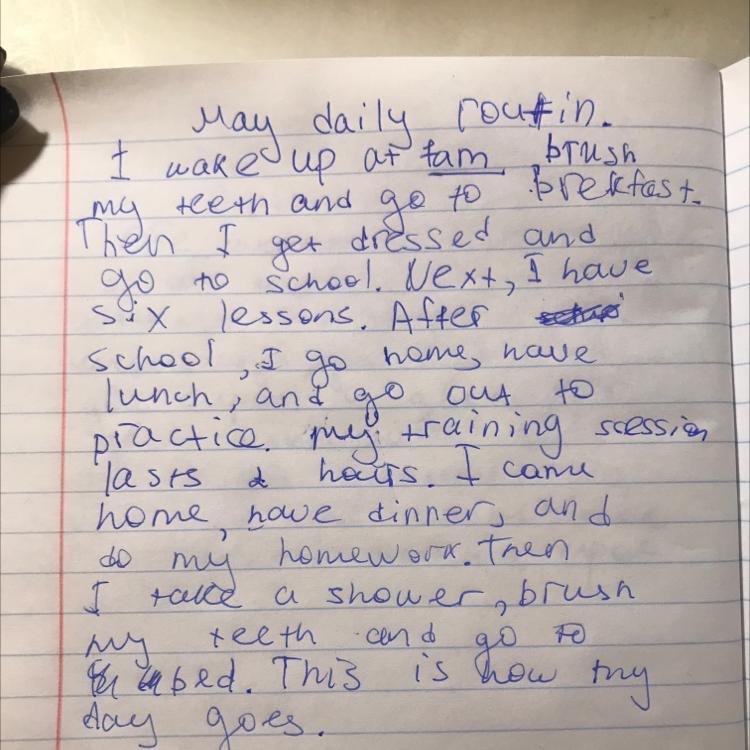 May daily routin.
I wake up at 7am, brush
my teeth and go to brekfast.
Then I get dressed and
go to school. Next, I have
six lessons. After
school, I go home, have
lunch, and go out to
practice. my training scession
lasts 2 hours. I came
home, have dinner, and
do my homework. Then
I take a shower, brush
my teeth and go to
bed. This is how my
day goes.